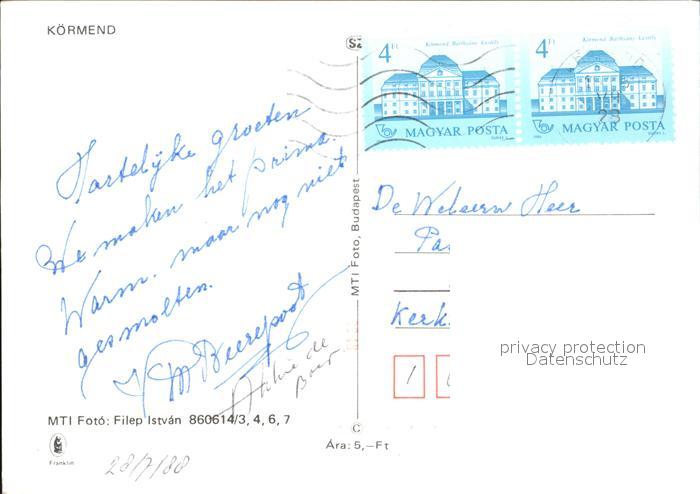 KÖRMEND
Hartelijke groeten
We maken het prima.
Warm. maar nog niet
gesmolten.
de
Boer
MTI Fotó: Filep István 860614/3, 4, 6, 7
Franklin
28/7/88
MTI Foto, Budapest
SZ
C
Ára: 5,-Ft
4 Ft
Körmend, Batthyány-kastély
MAGYAR POSTA
4 Ft
Körmend, Batthyány-kastély
MAGYAR POSTA
23
De Weleerw Heer
Pa
Kerk
1
privacy protection
Datenschutz